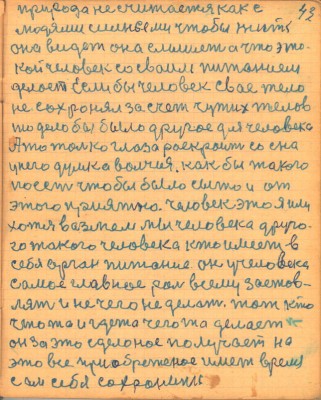 42
природа не считается как с
людями с иньвеми чтобы жить
она видет она слышет а что это
кой человек со своим питанием
делает Если бы человек свае тело
не сохронял за счет чужих телов
то дело бы было другое для человека
А то толко глаза раскроит со сна
у него думка волчия. как бы такого
посеть чтобы было сыто и от
этого приятно. человек это я или
хотя вазмем мы человека друго-
го такого человека кто имеет в
себя орган питание он учеловека
самое главное рол всему застов-
лят и не чего не делат. тот кто
что та и где та чего та делает
он за это сделоное получает на
это все приобретеное имет время
сам себя сохронить